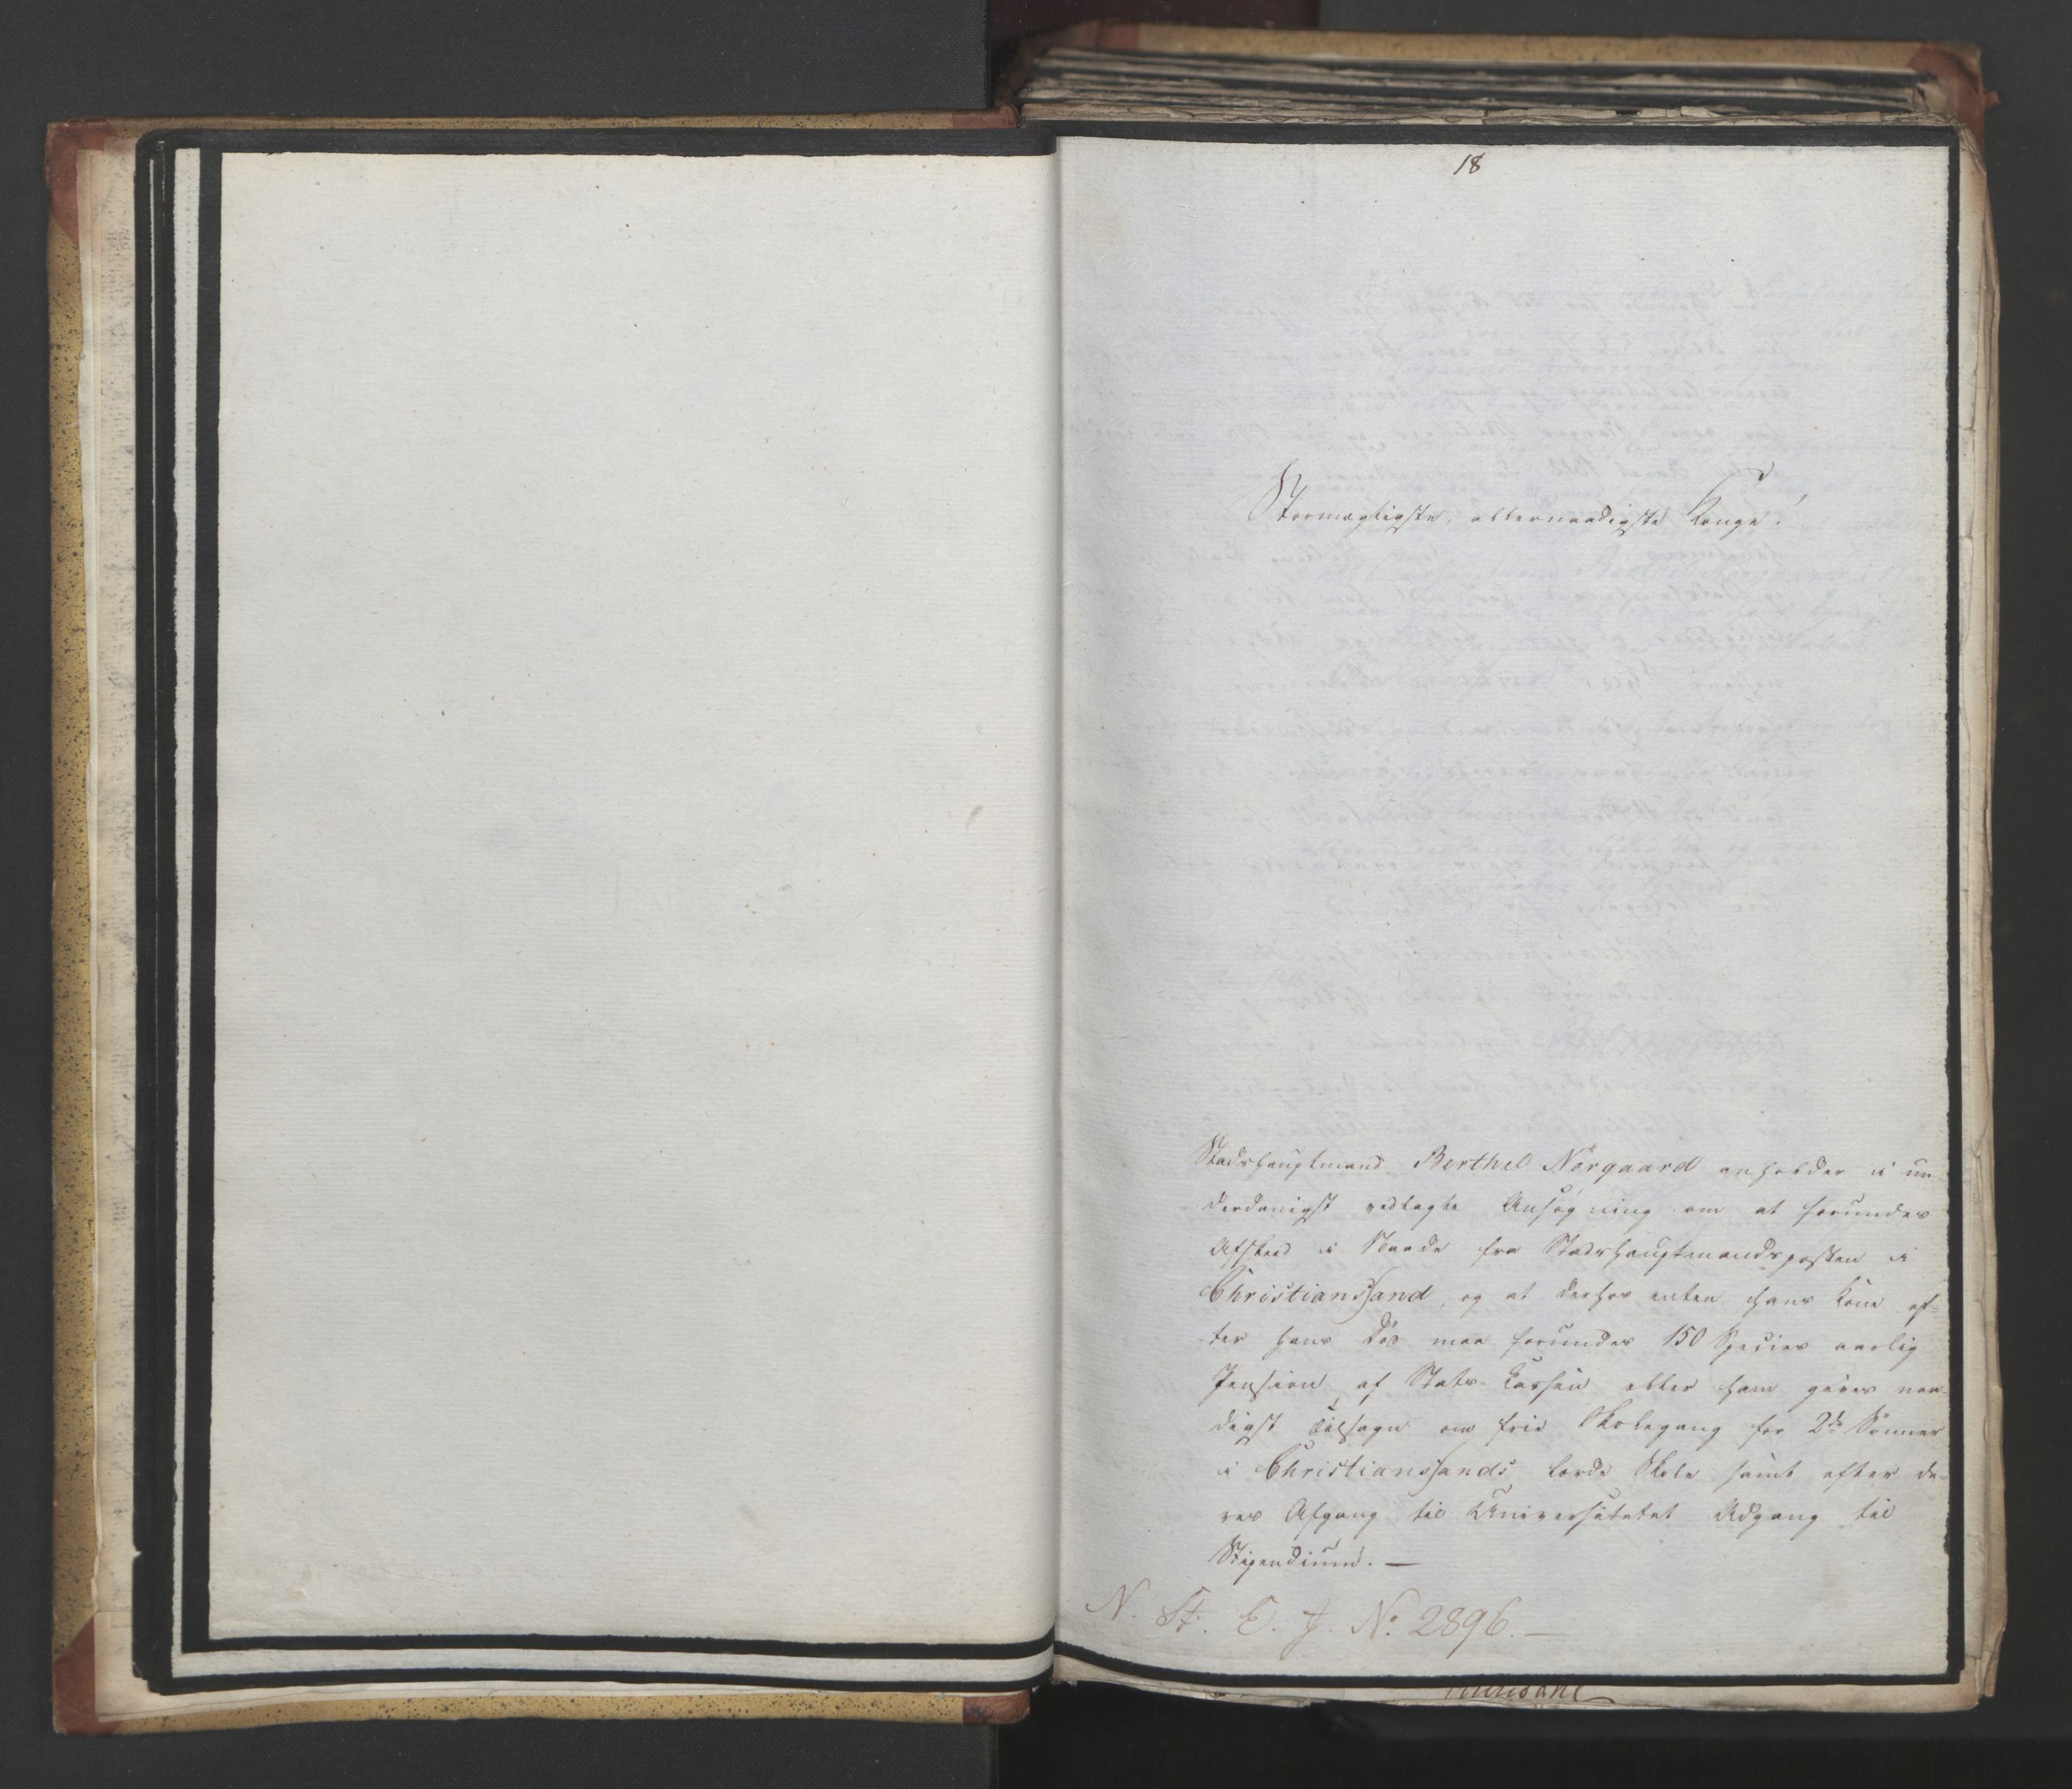 18
Stormægtigste, allernaadigste Konge!
Stadshauptmand Berthel Nörgaard anholder i un
derdanigst vedlagte Ansøgning om at forundes
Afsked i Naade fra Stadshauptmandsposten i
Christianssand, og at derhos enten hans Kone ef-
ter hans Död maa forundes 150 Species aarlig
Pension af Stats-Kassen eller ham gives naa-
digst Tilsagn om frie Skolegang for 2de Sönner
i Christianssands lærde Skole samt efter de-
res Afgang til Universitetet Adgang til
Stipendium. —
N. St. E. J. No. 2896. —